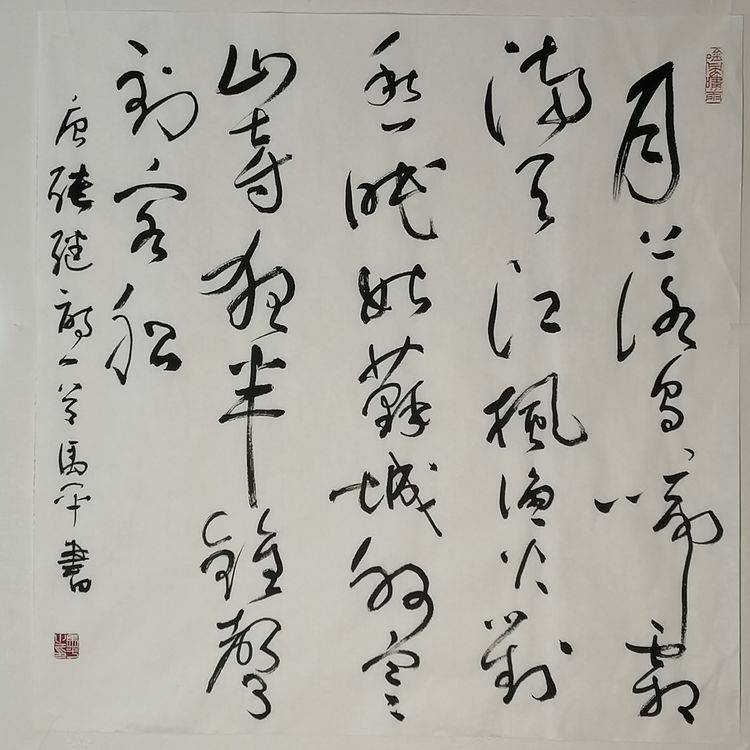 月落烏啼霜
滿天江楓漁火對
愁眠姑蘇城外寒
山寺夜半鐘聲
到客船
唐張繼詩一首馬平書